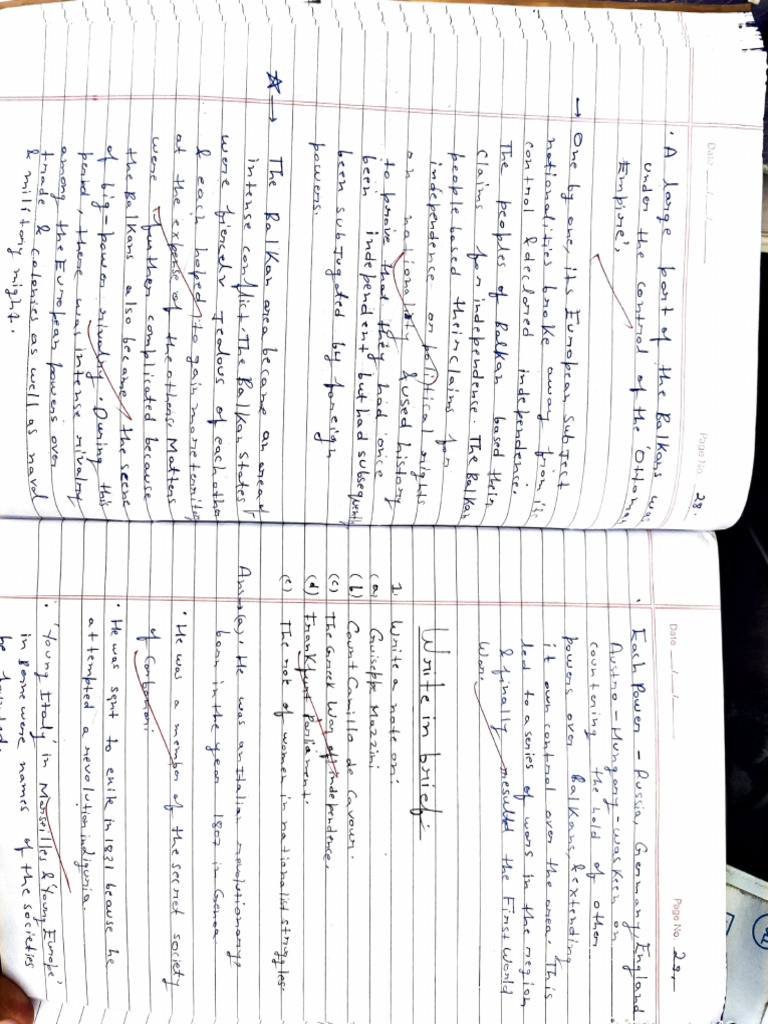 Date __/__/__
Page No. 28.
· A large part of the Balkans was
under the control of the 'Ottoman
Empire'.
→ One by one, its European subject
nationalities broke away from its
control & declared independence.
The peoples of Balkan based their
claims for independence. The Balkan
people based their claims for
independence or political rights
on nationality & used history
to prove that they had once
been independent but had subsequently
been subjugated by foreign
powers.
☆→ The Balkan area became an area of
intense conflict. The Balkan States
were fiercely jealous of each other
& each hoped to gain more territory
at the expense of the others. Matters
were further complicated because
the Balkans also became the scene
of big-power rivalry. During this
period, there was intense rivalry
among the European powers over
trade & colonies as well as naval
& military might.
Date __/__/__
Page No. 29.
· Each Power - Russia, Germany, England
Austro-Hungary - was keen on
countering the hold of other
powers over Balkans, & extending
it own control over the area. This
led to a series of wars in the region
& finally resulted the First World
War.
Write in brief:-
1. Write a note on:
(a) Guiseppe Mazzini
(b) Count Camillo de Cavour.
(c) The Greek War of independence.
(d) Frankfurt Parliament.
(e) The role of women in nationalist struggles.
Answer(a)· He was an Italian revolutionary,
born in the year 1807 in Genoa
· He was a member of the secret society
of Carbonari.
· He was sent to exile in 1831 because he
attempted a revolution in Liguria.
· 'Young Italy' in Marseilles & 'Young Europe'
in Berne were names of the societies
he founded.